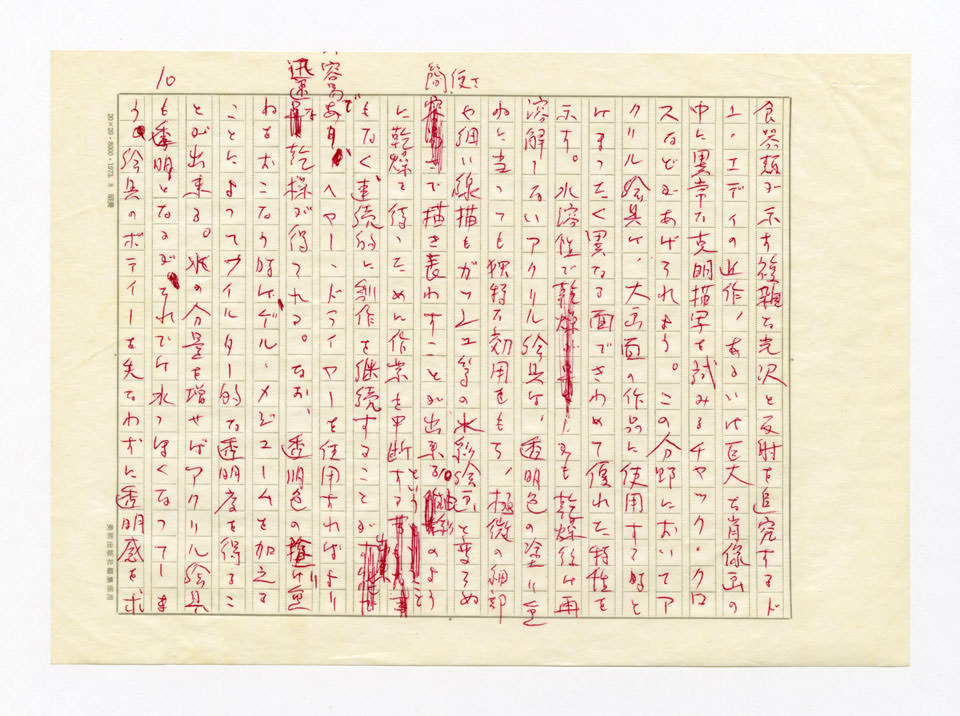 食器類が示す複雑な光沢と反射を追究するド
ン・エディの近作、あるいは巨大な肖像画の
中に異常な克明描写を試みるチャック・クロ
スなどがあげられよう。この分野においてア
クリル絵具は、大画面の作品に使用する時と
はまったく異なる面できわめて優れた特性を
示す。水溶性で しかも乾燥後は再
溶解しないアクリル絵具は、透明色の塗り重
ねに当っても独特な効用をもち、極微の細部
や細い線描もガッシュ等の水彩絵具と変らぬ
簡便さで描き表わすことが出来る。油彩のよう
に乾燥を待つために作業を中断するということ
もなく連続的に制作を継続することが
容易である。ヘヤー・ドライヤーを使用すればより
迅速な乾燥が得られる。なお、透明色の塗り重
ねをおこなう時はゲル・メジュームを加える
ことによってフイルター的な透明度を得るこ
とが出来る。水の分量を増せばアクリル絵具
も透明となるが、それでは水っぽくなってしま
う。絵具のボディーを失なわずに透明感を求
10
20×20・8000・1973. 8
美術出版社編集部用